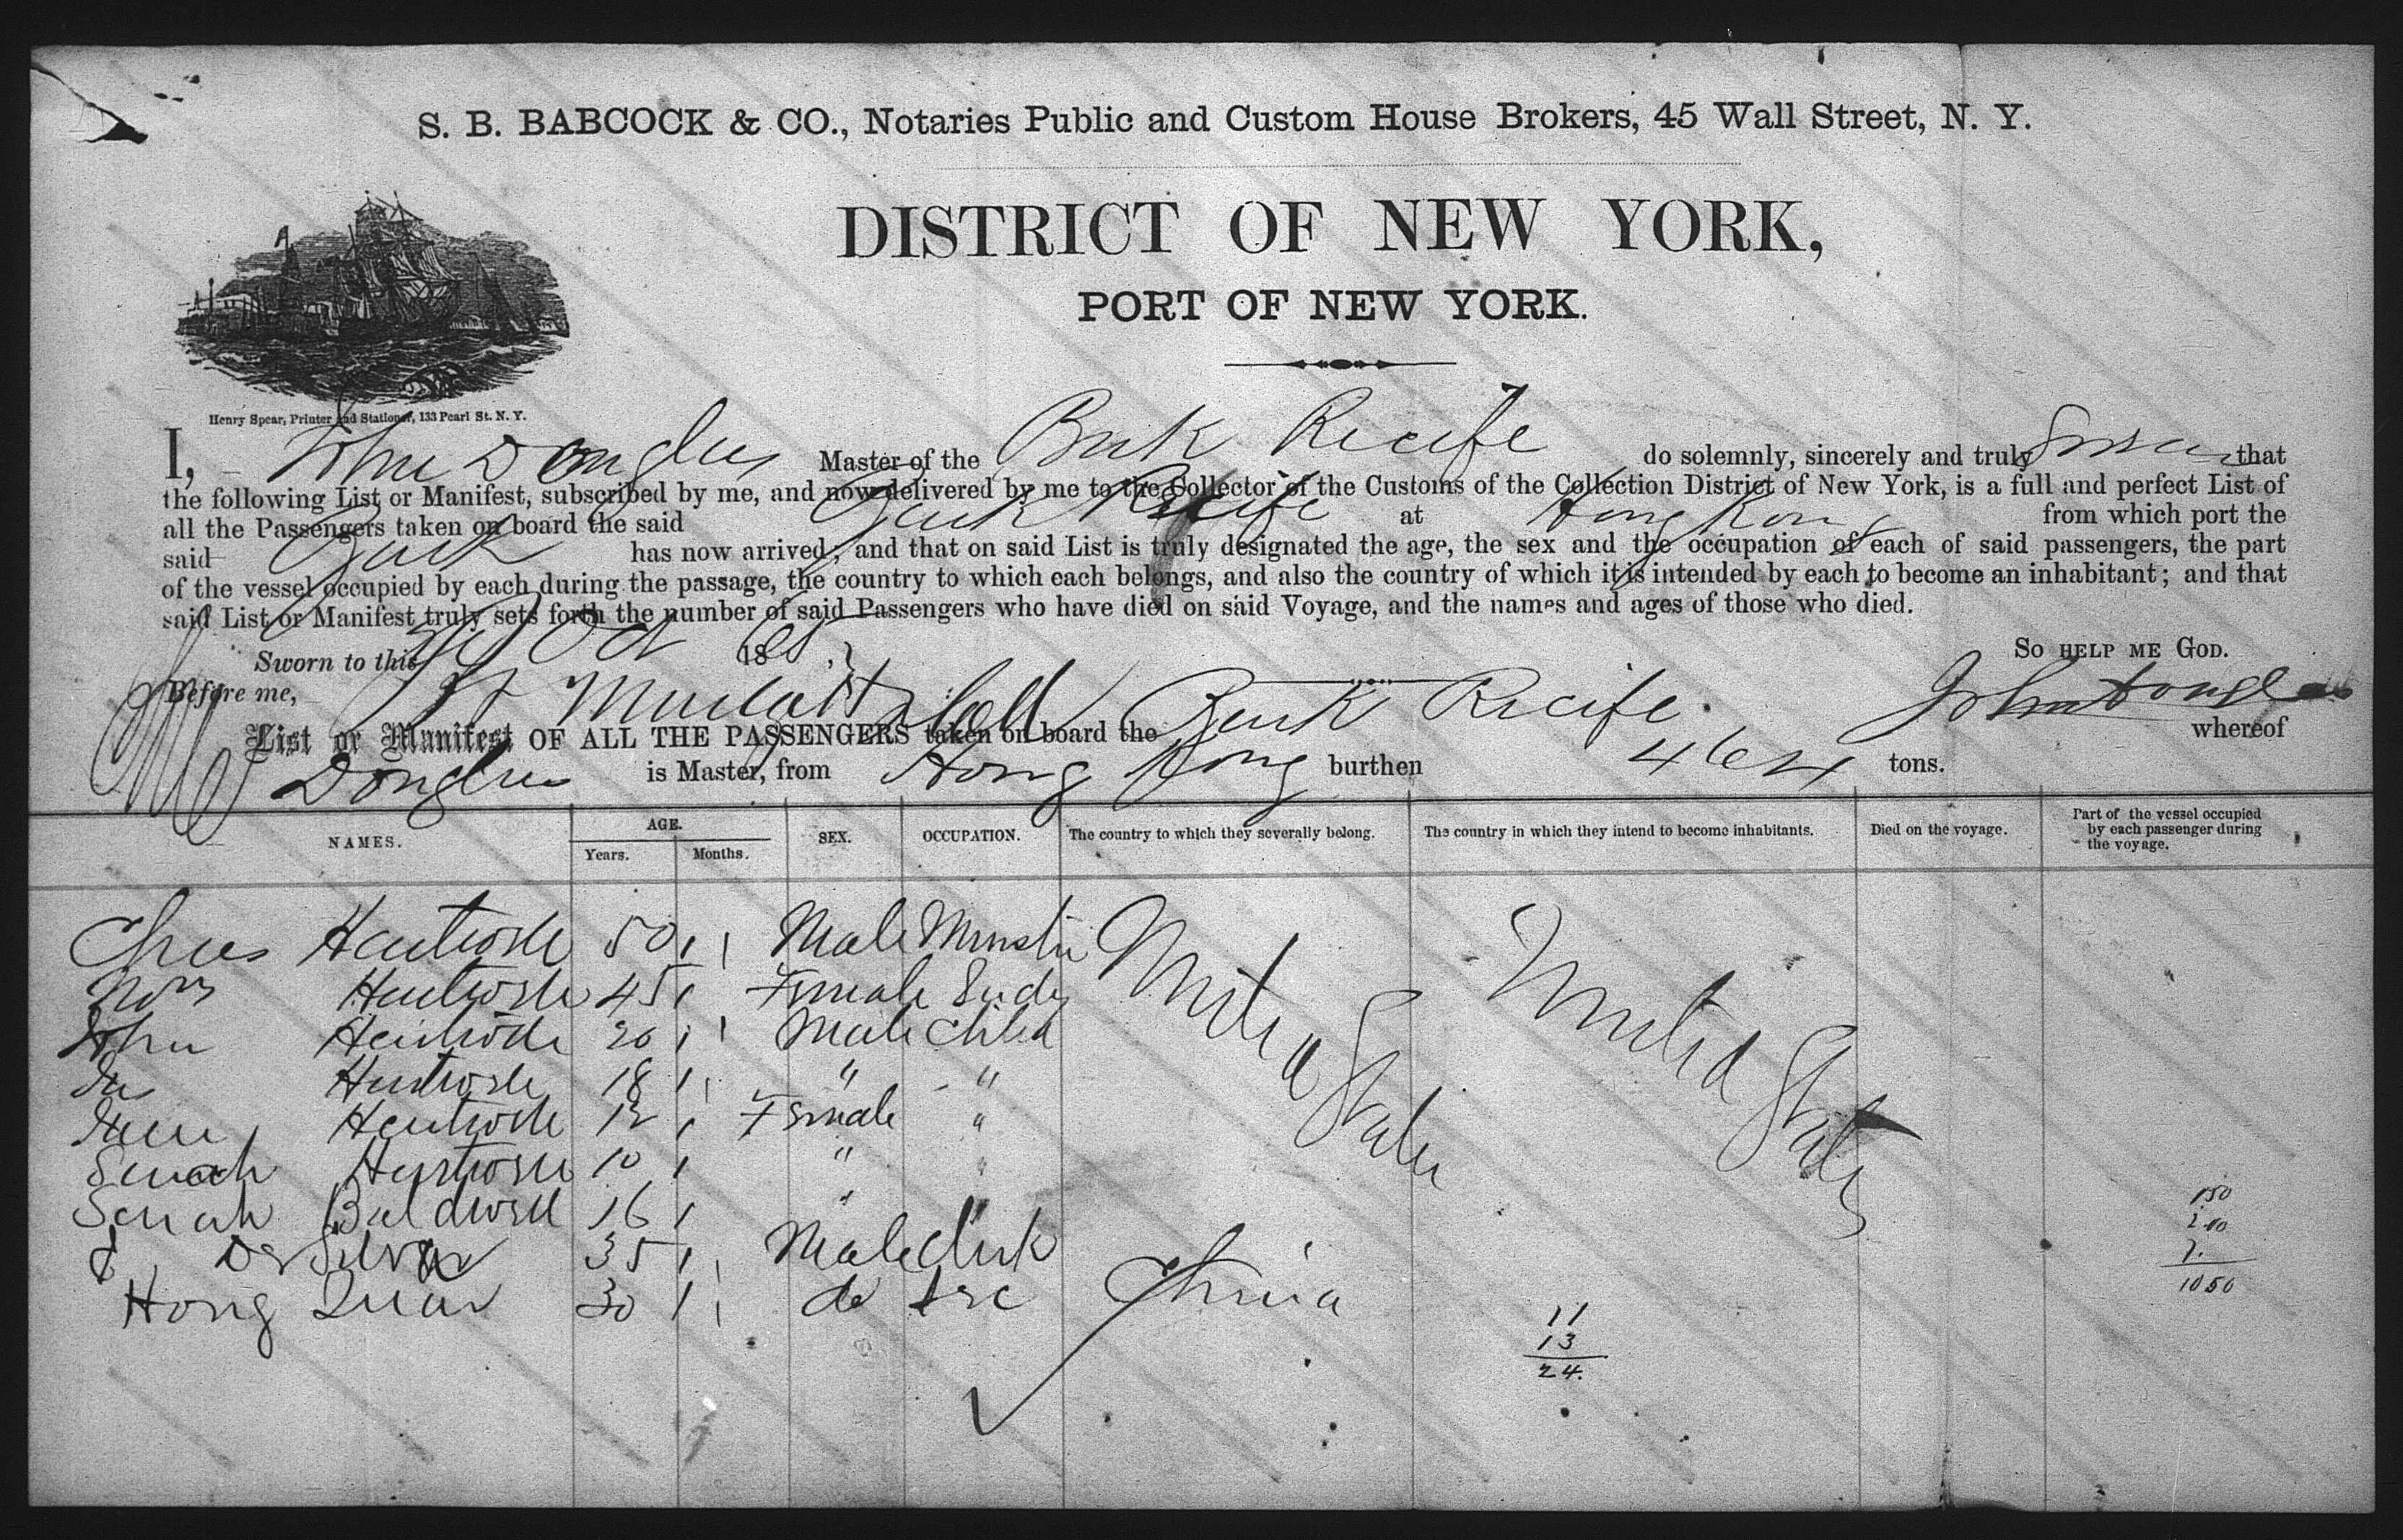 S. B. BABCOCK & CO., Notaries Public and Custom House Brokers, 45 Wall Street, N. Y.
DISTRICT OF NEW YORK,
PORT OF NEW YORK.
Henry Spear, Printer and Stationer, 133 Pearl St. N. Y.
I, John Douglas Master of the Bark Recife do solemnly, sincerely and truly Swear that
the following List or Manifest, subscribed by me, and now delivered by me to the Collector of the Customs of the Collection District of New York, is a full and perfect List of
all the Passengers taken on board the said Bark Recife at Hong Kong from which port the
said Bark has now arrived; and that on said List is truly designated the age, the sex and the occupation of each of said passengers, the part
of the vessel occupied by each during the passage, the country to which each belongs, and also the country of which it is intended by each to become an inhabitant; and that
said List or Manifest truly sets forth the number of said Passengers who have died on said Voyage, and the names and ages of those who died.
Sworn to this Oct 1865 So HELP ME GOD.
Before me, John Douglas
List or Manifest OF ALL THE PASSENGERS taken on board the Bark Recife whereof
Douglas is Master, from Hong Kong burthen 464 tons.
NAMES. AGE. Years. Months. SEX. OCCUPATION. The country to which they severally belong. The country in which they intend to become inhabitants. Died on the voyage. Part of the vessel occupied by each passenger during the voyage.
Chas 50 Male United States United States
Mrs 45 Female Lady
John 20 Male Child
18 " "
12 Female "
Sarah 10 " "
Sarah Baldwin 16 " "
De Silva 35 Male Clerk
Hong 30 do China
150
200
1050
11
13
24.